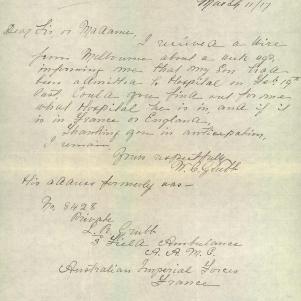 March 11/17
Dear Sir or Madame,
I received a wire
from Melbourne about a week ago,
informing me that my Son had
been admitted to Hospital on Feb 19th
last. Could you find out for me
what Hospital he is in and if it
is in France or England,
Thanking you in anticipation,
I remain,
Yours respectfully
W. C. Grubb
His address formerly was—
No 8428
Private
L. A. Grubb
3 Field Ambulance
A. A. M. C.
Australian Imperial Forces
France